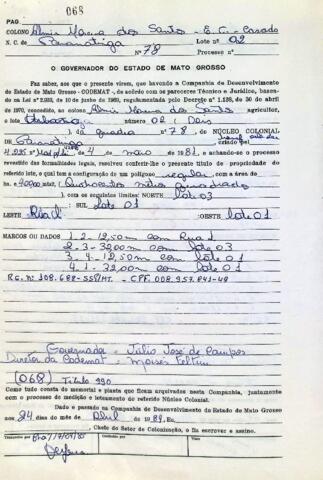 PAG. 068
COLONO Maria dos Santos - E. C. - Casado
N. C. de Paranatinga Lote nº 02
Nº 78 Processo nº
O GOVERNADOR DO ESTADO DE MATO GROSSO
Faz saber, aos que o presente virem, que havendo a Companhia de Desenvolvimento
do Estado de Mato Grosso - CODEMAT -, de acordo com os pareceres Técnico e Jurídico, basea-
do na Lei nº 2.933, de 10 de junho de 1969, regulamentada pelo Decreto nº 1.138, de 30 de abril
de 1970, concedido ao colono Maria dos Santos agricultor,
o Lote Urbano número 02 ( Dois
) da quadra nº 78, do NÚCLEO COLONIAL
Paranatinga criado pela
4.235 de 4 de maio de 1981, e achando-se o processo
revestido das formalidades legais, resolveu conferir-lhe o presente título de propriedade do
referido lote, o qual tem a configuração de um polígono regular com a área de
ha 400,00 mts² (Quatrocentos metros quadrados
), com os seguintes limites: NORTE lote 03
SUL lote 01
LESTE Rua 1 OESTE lote 01
MARCOS OU DADOS 1-2-12,50m com Rua 1
2-3-32,00m com lote 03
3-4-12,50m com lote 01
4-1-32,00m com lote 01
R.G. Nº 108.688-SSP/MT. - CPF. 008.957.841-48
Governador - Júlio José de Campos
Diretor da Codemat - Moisés Feltrin
(068) Título 990
Como tudo consta do memorial e planta que ficam arquivados nesta Companhia, juntamente
com o processo de medição e loteamento do referido Núcleo Colonial.
Dado e passado na Companhia de Desenvolvimento do Estado de Mato Grosso
aos 24 dias do mês de Abril de 1984, Eu,
, Chefe do Setor de Colonização, o fiz escrever e assino.
Transcrito por Conferido por Visto